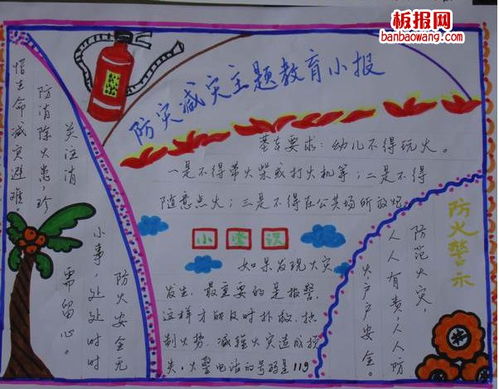 板报网
banbaowang.com
防灾减灾主题教育小报
基本要求:幼儿不得玩火。
一是不得带火柴或打火机等;二是不得
随意点火;三是不得在公共场所放烟
小常识
如果发现火灾
发生,最重要的是报警,
这样才能及时扑救,控
制火势,减轻火灾造成损
失,火警电话的号码是119
关注消
防消除火患珍
惜生命减灾避难
防火安全无
小事,处处时时
需留心。
防火警示
防范火灾,
人人有责,人人防
火户户安全。